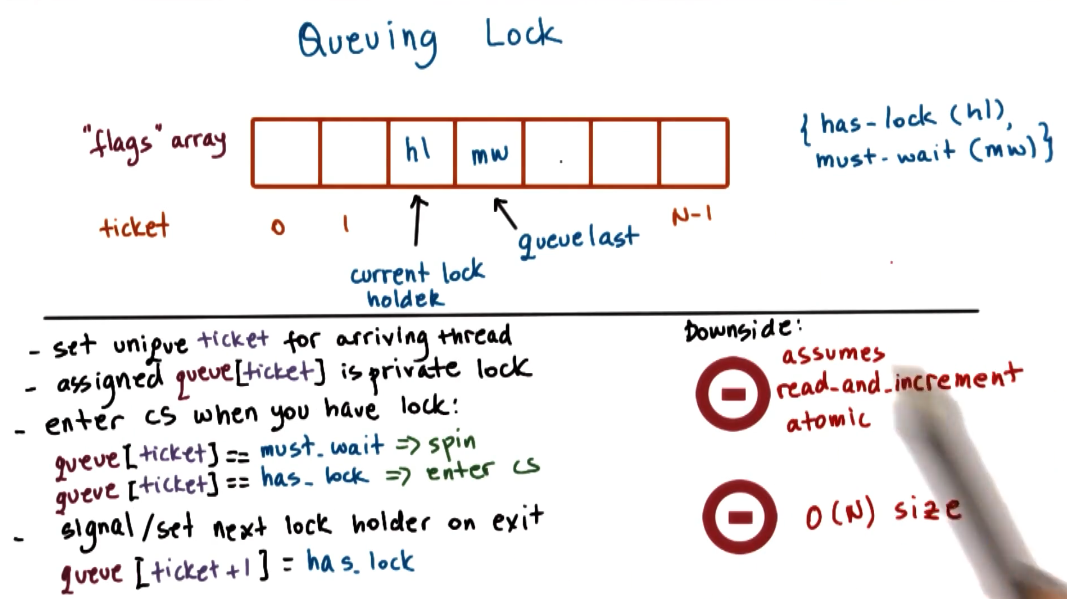 Queuing Lock
"flags" array
hl
mw
{ has-lock (hl),
must-wait (mw) }
ticket
0
1
N-1
current lock
holder
queuelast
- set unique ticket for arriving thread
- assigned queue[ticket] is private lock
- enter cs when you have lock:
queue[ticket] == must_wait => spin
queue[ticket] == has_lock => enter cs
- signal/set next lock holder on exit
queue[ticket+1] = has_lock
Downside:
assumes
read_and_increment
atomic
O(N) size